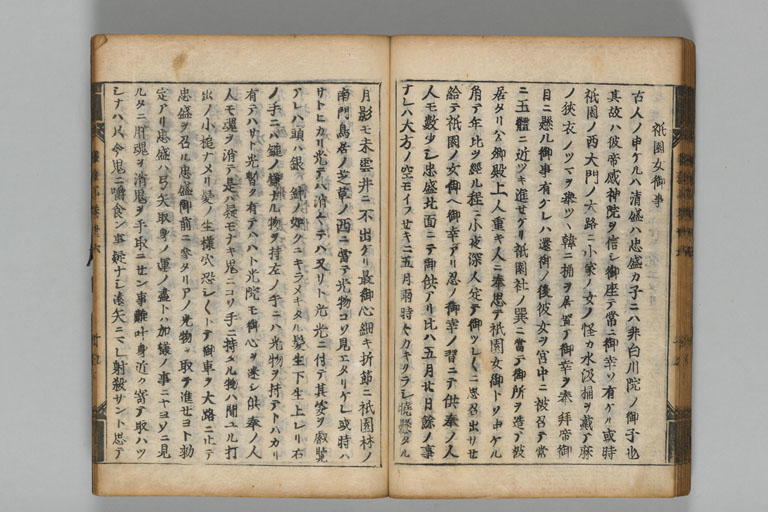 祇園女御事
古人ノ申ケルハ清盛ハ忠盛カ子ニハ非白川院ノ御子也
其故ハ彼帝感神院ヲ信シ御座テ常ニ御幸ソ有ケル或時
祇園ノ西大門ノ大路ニ小家ノ女ノ怪カ水汲桶ヲ戴テ麻
ノ狭衣ノツマヲ
桶ヲ居置テ御幸ヲ奉拝帝御
目ニ懸ル御事有ケレハ還御ノ後彼女ヲ宮中ニ被召テ常
ニ玉體ニ近ツキ進セケリ祇園社ノ巽ニ當テ御所ヲ造テ被
居タリ公卿殿上人重キ人ニ奉思テ祇園女御トソ申ケル
角テ年比ヲ經ル程ニ小夜深人定テ御ツレ〱ニ思召出サセ
給テ祇園ノ女御ヘ御幸アリ忍ノ御幸ノ習ニテ供奉ノ人
人モ數少シ忠盛北面ニテ御供アリ比ハ五月廿日餘ノ事
ナレハ大方ノ空モイフセキニ五月雨時々カキクラシ
月影モ未雲井ニ不出ケリ最御心細キ折節ニ祇園林ノ
南門鳥居ノ芝草ノ西ニ當テ光物コソ見エタリケレ或時ハ
サトヒカリ光テハ消上テハ又リト光光ニ付テ其姿ヲ叡覧
アレハ頭ハ銀ノ針ノ如クニキラメキタル髪生下生上レリ右
ノ手ニハ鎚ノ様ナル物ヲ持左ノ手ニハ光物ヲ持テトハカリ
有テハサト光暫ク有テハハト光院モ御心ヲ迷シ供奉ノ人
人モ魂ヲ消テ是ハ疑モナキ鬼ニコソ手ニ持タル物ハ聞ユル打
出ノ小槌ナメリ髪ノ生様穴恐シ〱トテ御車ヲ大路ニ止テ
忠盛ヲ召ル忠盛御前ニ参タリアノ光物ヲ取テ進セヨト勅
定アリ忠盛ハ弓矢取身ノ運ノ盡トハ加様ノ事ニヤヨソニ見
ルタニ肝魂ヲ消鬼ヲ手取ニセン事難叶身近ク寄テ取ハツ
シナハ只今鬼ニ嚼食ン事疑ナシ遠矢ニマレ射殺サント思テ